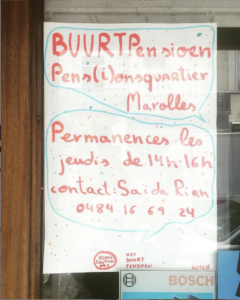 BUURTPensioen
Pens(i)onsquartier
Marolles
Permanences les
jeudis de 14h-16h
contact: Saida Rian
0484 16 69 24
HET
BUURT
PENSIOEN
BOSCH
BOSCH